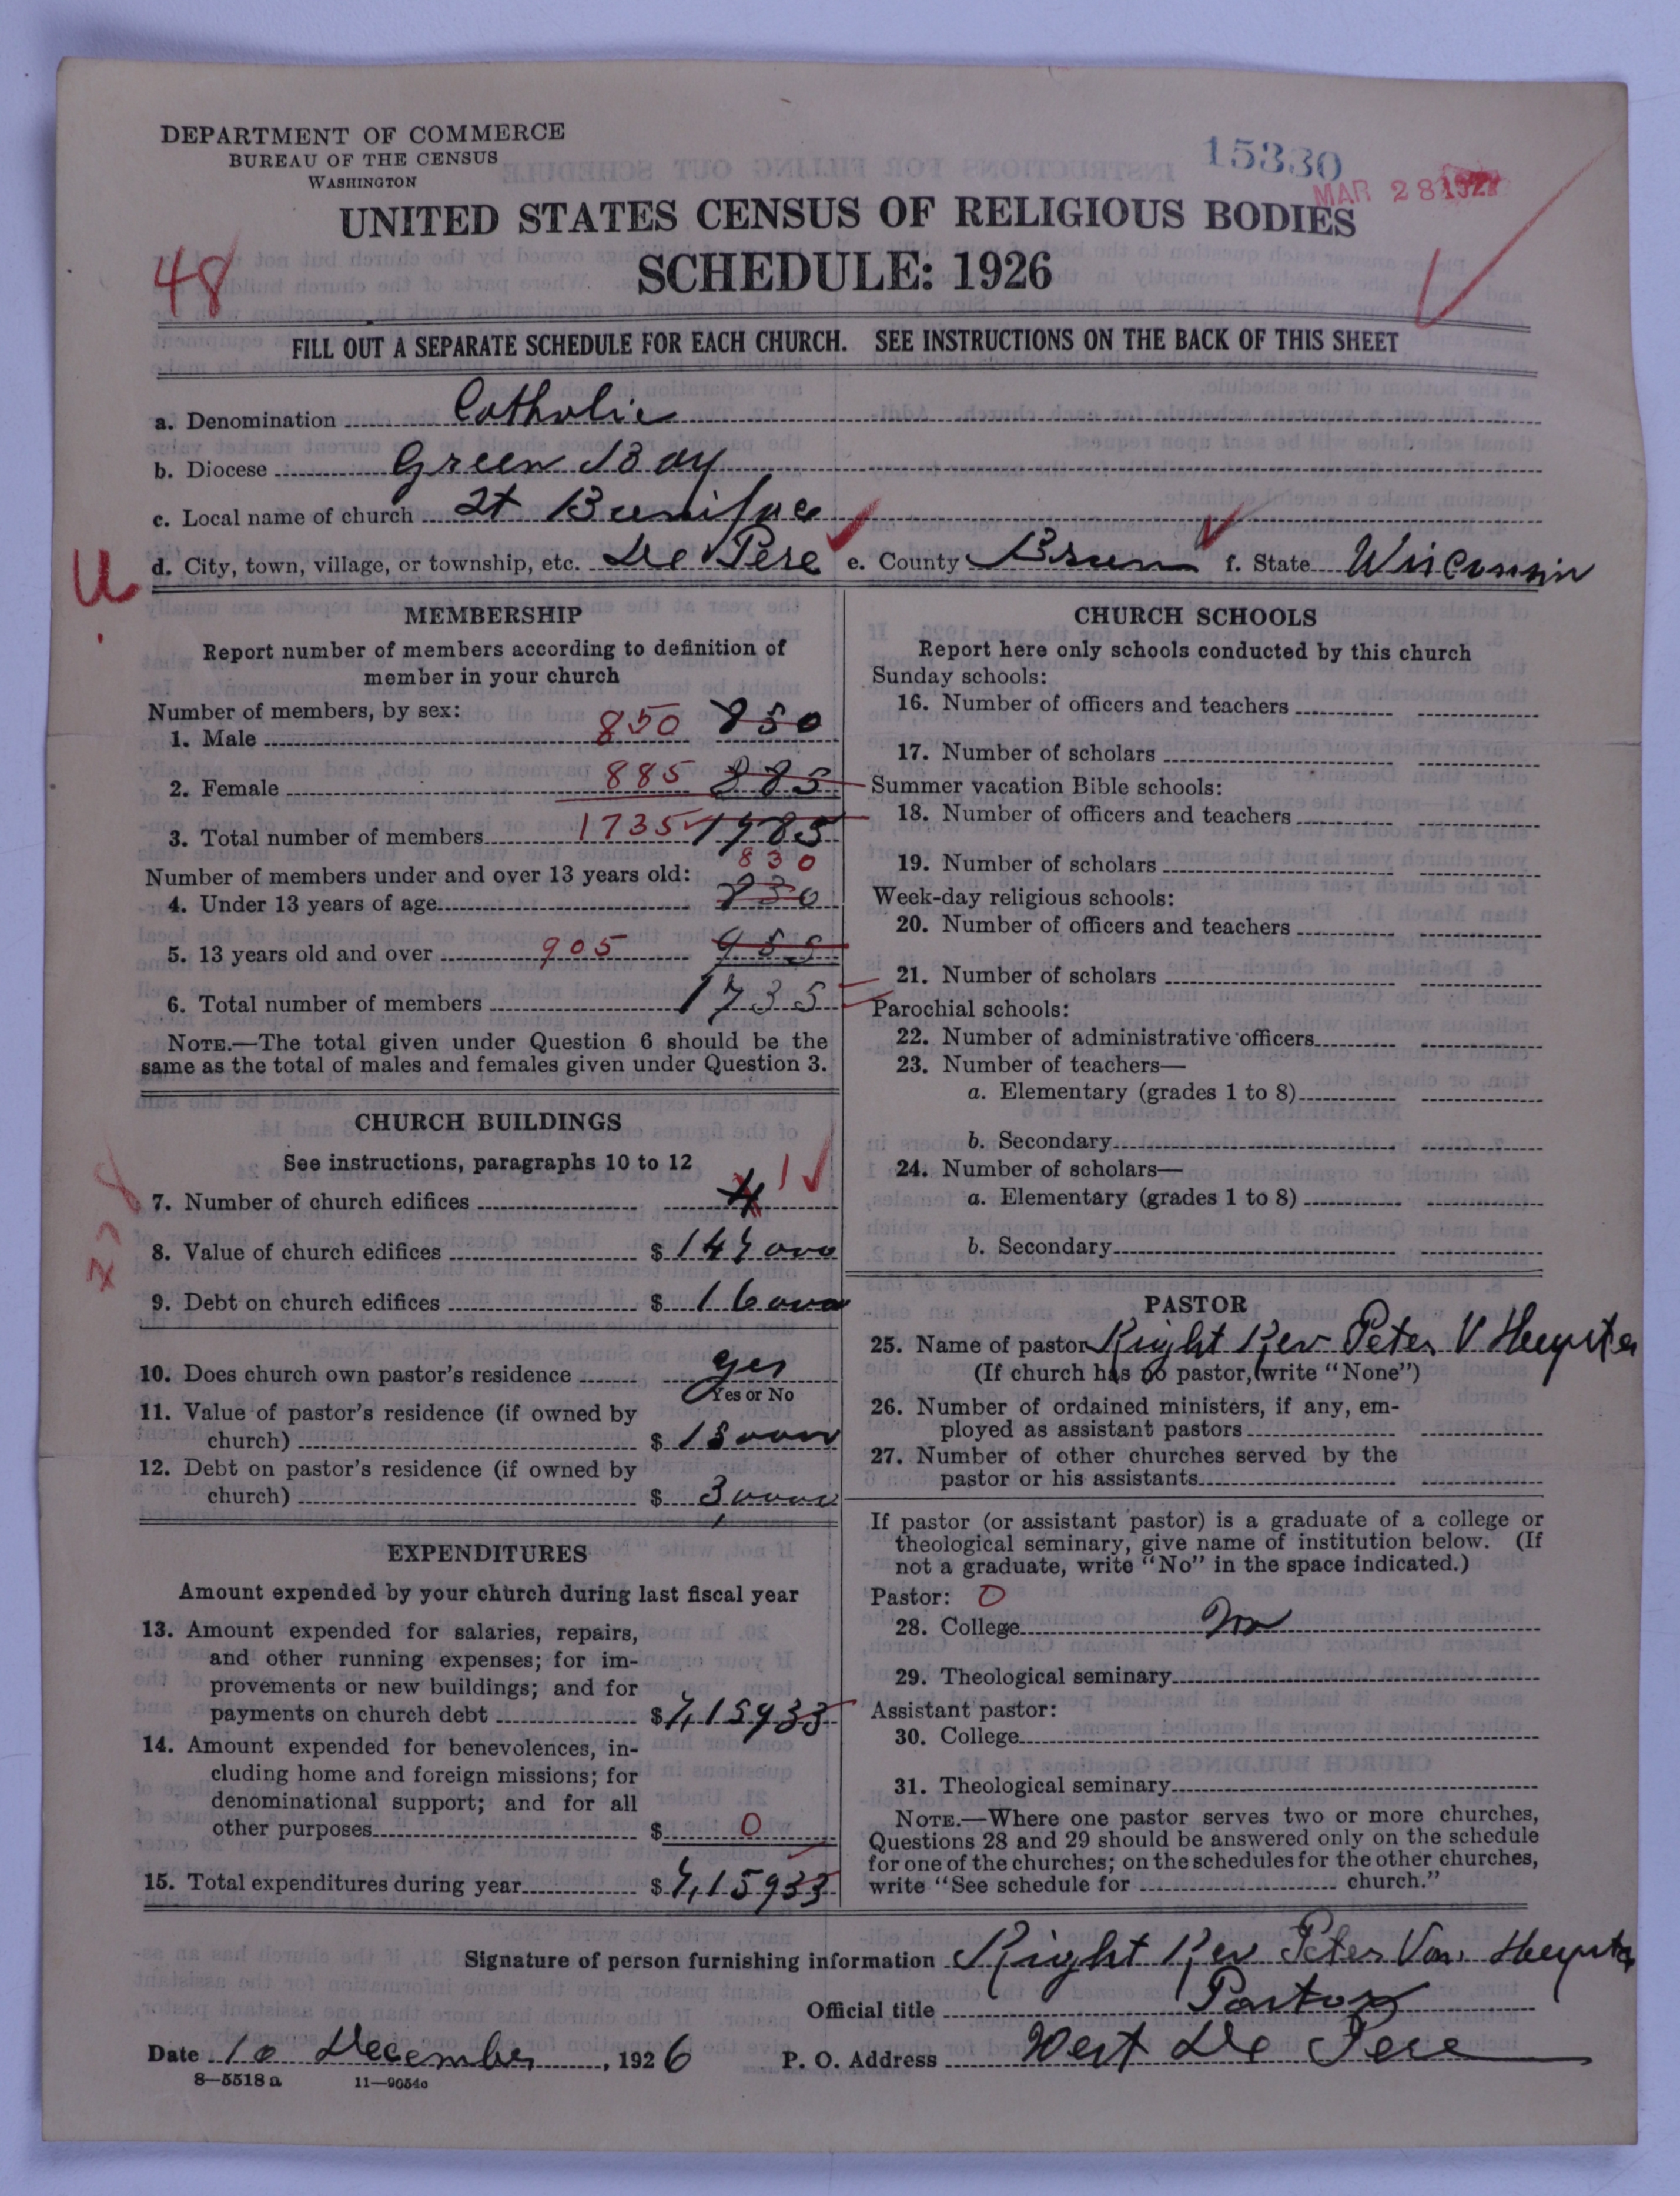 DEPARTMENT OF COMMERCE
BUREAU OF THE CENSUS
WASHINGTON
15330
MAR 28 1927
UNITED STATES CENSUS OF RELIGIOUS BODIES
SCHEDULE: 1926
48
FILL OUT A SEPARATE SCHEDULE FOR EACH CHURCH. SEE INSTRUCTIONS ON THE BACK OF THIS SHEET
a. Denomination Catholic
b. Diocese Green Bay
c. Local name of church St Boniface
d. City, town, village, or township, etc. De Pere e. County Brown f. State Wisconsin
U
MEMBERSHIP
Report number of members according to definition of
member in your church
Number of members, by sex:
1. Male 850 850
2. Female 885 885
3. Total number of members 1735
830
Number of members under and over 13 years old:
4. Under 13 years of age 830
5. 13 years old and over 905
6. Total number of members 1735
NOTE.—The total given under Question 6 should be the
same as the total of males and females given under Question 3.
CHURCH BUILDINGS
See instructions, paragraphs 10 to 12
7. Number of church edifices 4 1
8. Value of church edifices $
9. Debt on church edifices $ 16000
10. Does church own pastor's residence yes
Yes or No
11. Value of pastor's residence (if owned by
church) $
12. Debt on pastor's residence (if owned by
church) $
EXPENDITURES
Amount expended by your church during last fiscal year
13. Amount expended for salaries, repairs,
and other running expenses; for im-
provements or new buildings; and for
payments on church debt $
14. Amount expended for benevolences, in-
cluding home and foreign missions; for
denominational support; and for all
other purposes $ 0
15. Total expenditures during year $
CHURCH SCHOOLS
Report here only schools conducted by this church
Sunday schools:
16. Number of officers and teachers
17. Number of scholars
Summer vacation Bible schools:
18. Number of officers and teachers
19. Number of scholars
Week-day religious schools:
20. Number of officers and teachers
21. Number of scholars
Parochial schools:
22. Number of administrative officers
23. Number of teachers—
a. Elementary (grades 1 to 8)
b. Secondary
24. Number of scholars—
a. Elementary (grades 1 to 8)
b. Secondary
PASTOR
25. Name of pastor Right Rev Peter V
(If church has no pastor, write "None")
26. Number of ordained ministers, if any, em-
ployed as assistant pastors
27. Number of other churches served by the
pastor or his assistants
If pastor (or assistant pastor) is a graduate of a college or
theological seminary, give name of institution below. (If
not a graduate, write "No" in the space indicated.)
Pastor: 0
28. College
29. Theological seminary
Assistant pastor:
30. College
31. Theological seminary
NOTE.—Where one pastor serves two or more churches,
Questions 28 and 29 should be answered only on the schedule
for one of the churches; on the schedules for the other churches,
write "See schedule for church."
Signature of person furnishing information Right Rev Peter Van
Official title Pastor
Date 10 December, 1926 P. O. Address West De Pere
8—5518 a 11—9054c